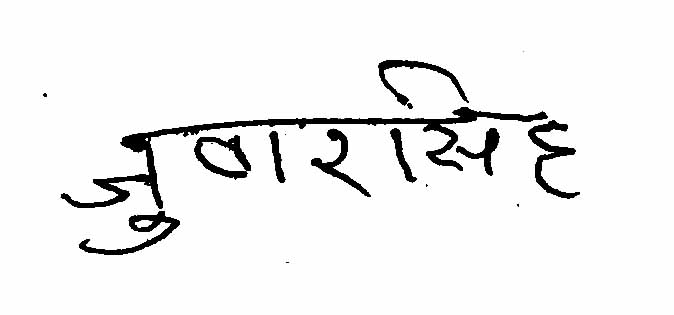 जुवारसिंह